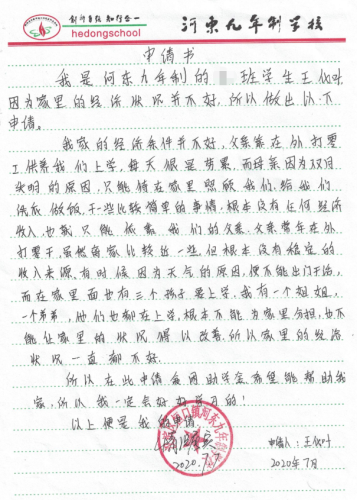 创新务实 知行合一
河东九年制学校
hedongschool
申请书
我是河东九年制的 班学生王
因为家里的经济状况并不好,所以做出以下
申请。
我家的经济条件并不好,父亲能在外打零
工供养我们上学,每天很是劳累,而母亲因为双目
失明的原因,只能待在家里照顾我们,给我们
洗衣做饭,干些比较简单的事情,根本没有任何经济
收入,也就只能依靠我们的父亲,父亲常年在外
打零工,虽然离家比较近一些,但根本没有稳定的
收入来源,有时候因为天气的原因,便不能出门干活,
而在家里面也有三个孩子要上学,我有一个姐姐,
一个弟弟,他们也都在上学,根本不能为家里分担,也不
能让家里的状况得以改善,所以家里的经济
状况一直都不好。
所以在此申请爱网助学金,希望能帮助我
家,所以我一定会好好学习的!
以上便是我的申请
申请人:王
2020.7
2020年7月